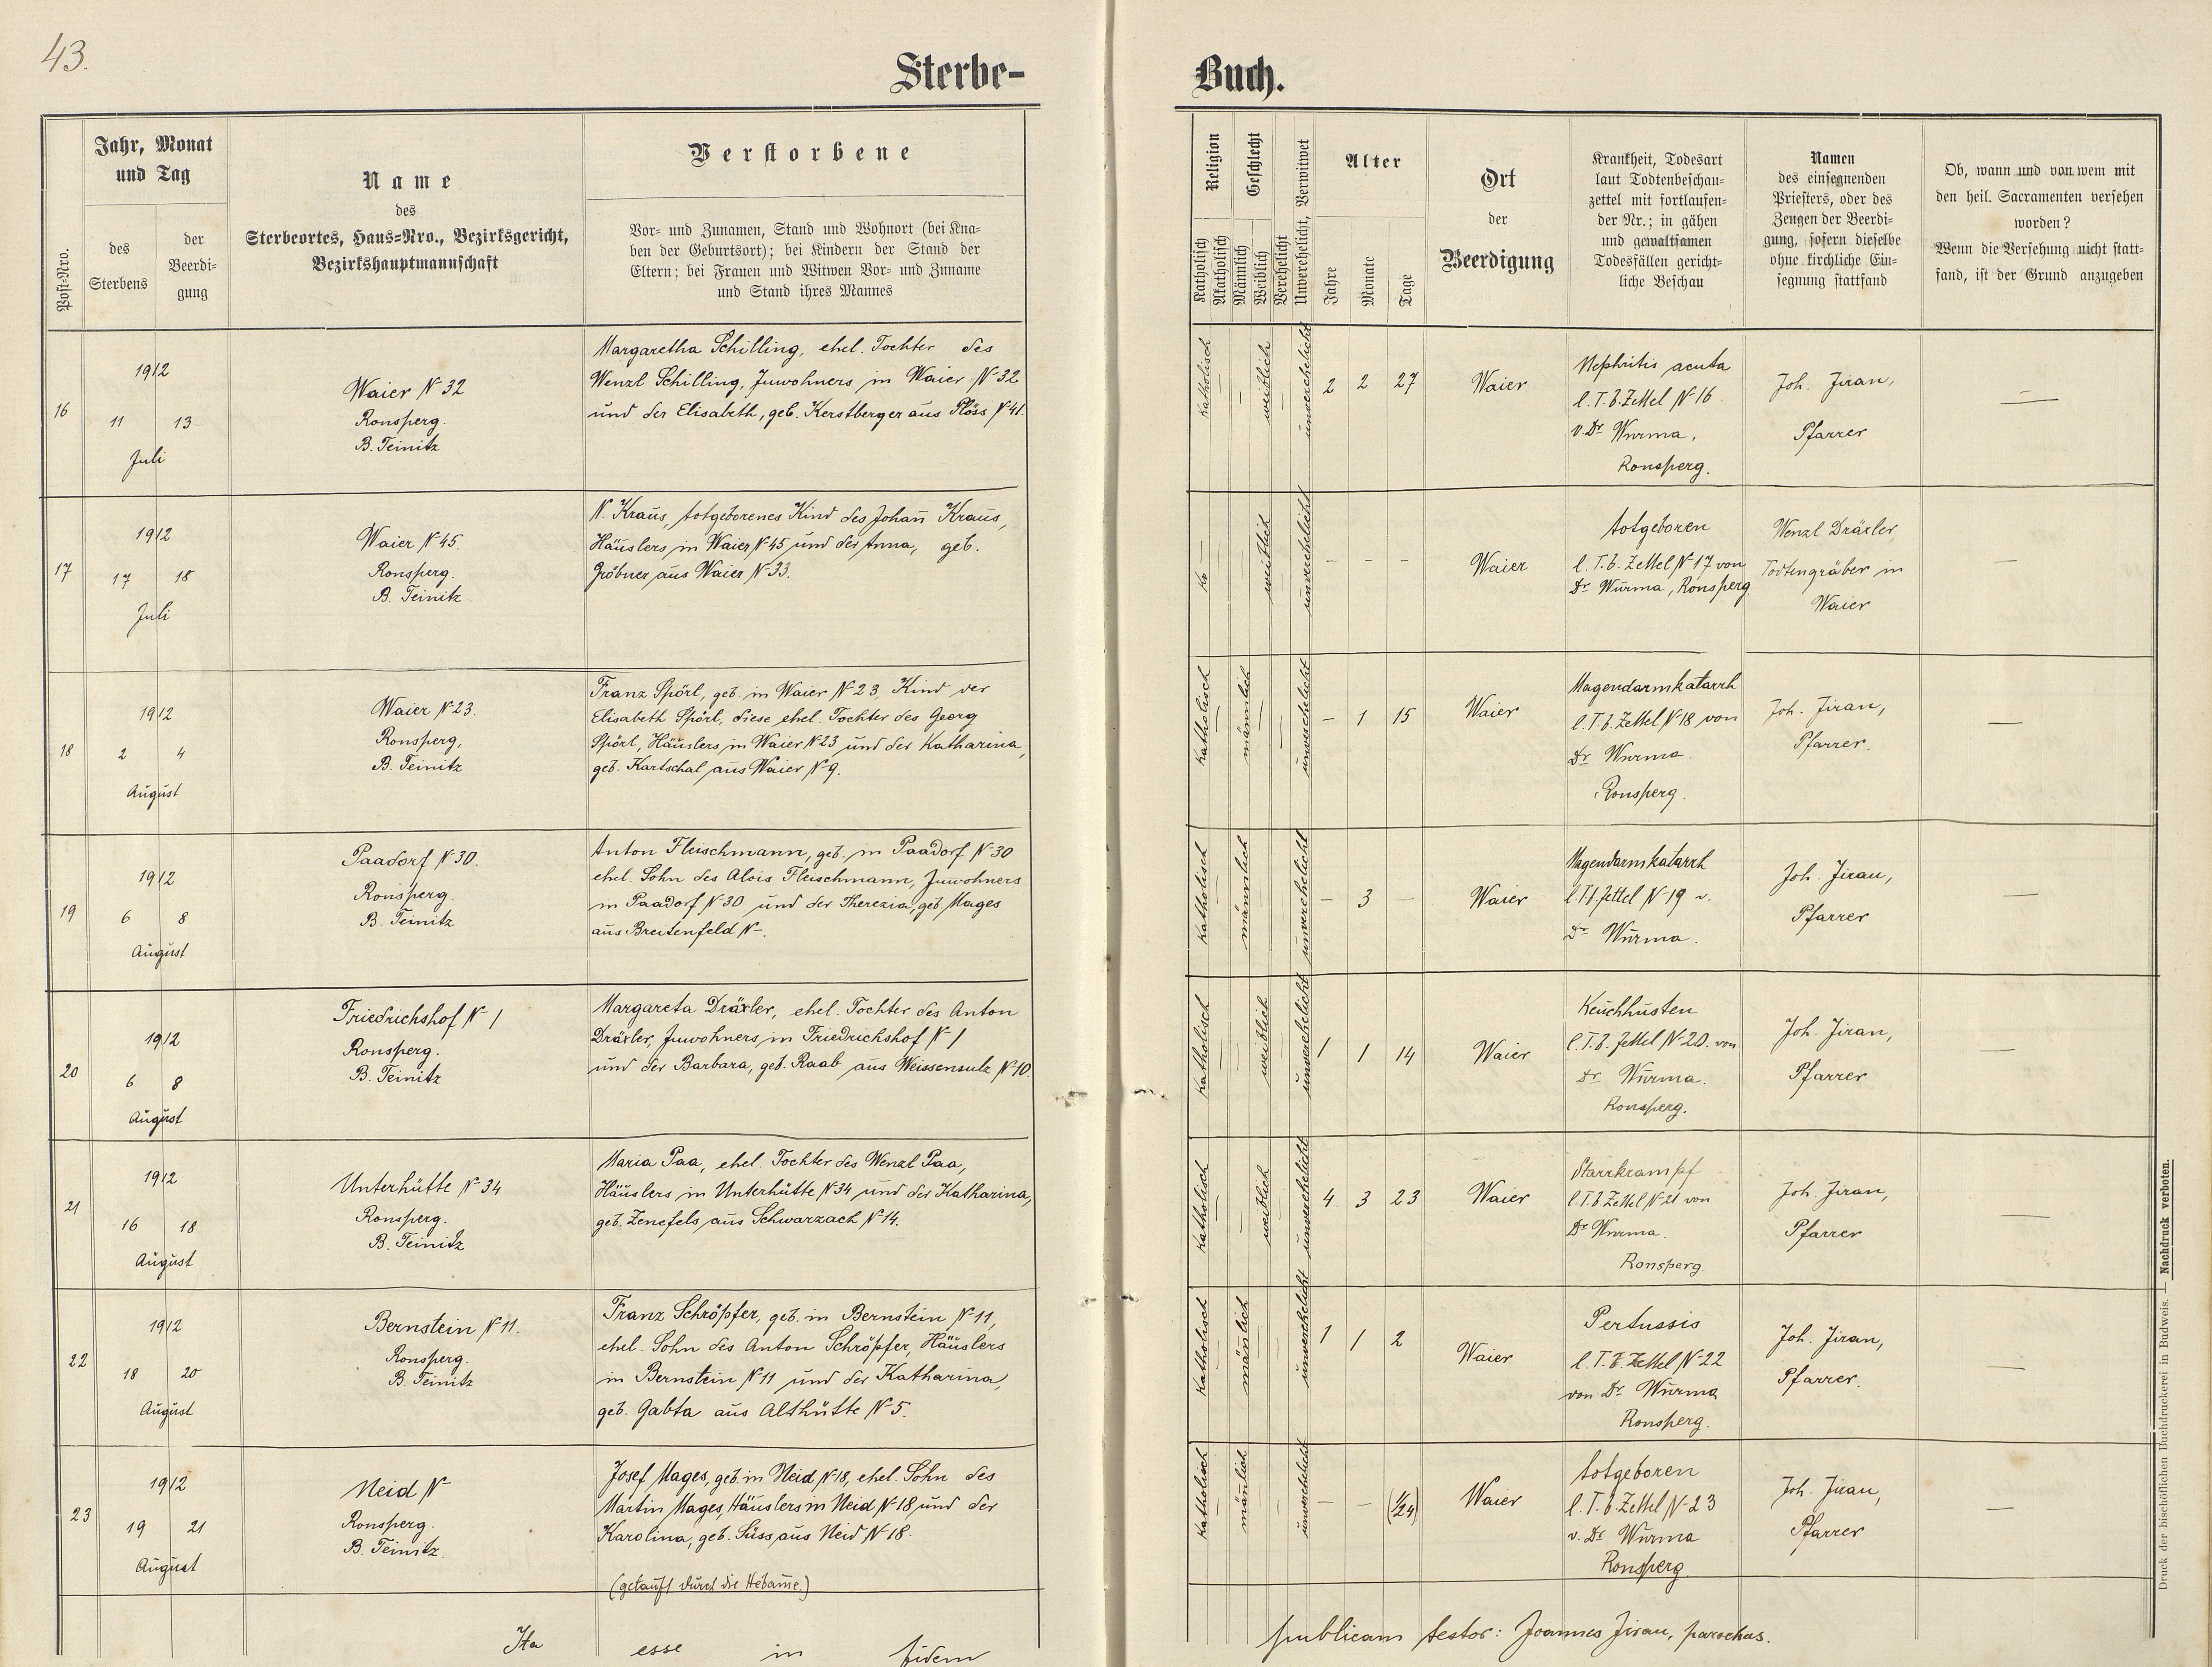 43.
Sterbe-
Buch.
Post-Nro.
Jahr, Monat
und Tag
des
Sterbens
der
Beerdi-
gung
Name
des
Sterbeortes, Haus-Nro., Bezirksgericht,
Bezirkshauptmannschaft
Verstorbene
Vor- und Zunamen, Stand und Wohnort (bei Kna-
ben der Geburtsort); bei Kindern der Stand der
Eltern; bei Frauen und Witwen Vor- und Zuname
und Stand ihres Mannes
Religion
Katholisch
Akatholisch
Geschlecht
Männlich
Weiblich
Verehelicht
Unverehelicht, Verwitwet
Alter
Jahre
Monate
Tage
Ort
der
Beerdigung
Krankheit, Todesart
laut Todtenbeschau-
zettel mit fortlaufen-
der Nr.; in gähen
und gewaltsamen
Todesfällen gericht-
liche Beschau
Namen
des einsegnenden
Priesters, oder des
Zeugen der Beerdi-
gung, sofern dieselbe
ohne kirchliche Ein-
segnung stattfand
Ob, wann und von wem mit
den heil. Sacramenten versehen
worden?
Wenn die Versehung nicht statt-
fand, ist der Grund anzugeben
16
1912
11 13
Juli
Waier N 32
Ronsperg.
B. Teinitz
Margaretha Schilling, ehel. Tochter des
Wenzl Schilling, Inwohners in Waier N 32
und der Elisabeth, geb. Kerstberger aus Plöss N 41.
Katholisch
—
—
weiblich
—
unverehelicht
2 2 27
Waier
Nephritis acuta
l. T. b. Zettel N 16
v. Dr Wurma,
Ronsperg.
Joh. Jiran,
Pfarrer
—
17
1912
17 18
Juli
Waier N 45.
Ronsperg.
B. Teinitz
N. Kraus, totgeborenes Kind des Johan̄ Kraus,
Häuslers in Waier N 45 und der Anna, geb.
Gröbner aus Waier N 33.
—
weiblich
—
unverehelicht
– – –
Waier
totgeboren
l. T. b. Zettel N 17 von
Dr Wurma, Ronsperg
Wenzl Dräxler,
Todtengräber in
Waier
—
18
1912
2 4
August
Waier N 23.
Ronsperg,
B. Teinitz
Franz Spörl, geb. in Waier N 23, Kind der
Elisabeth Spörl, diese ehel. Tochter des Georg
Spörl, Häuslers in Waier N 23 und der Katharina,
geb. Kartschal aus Waier N 9.
Katholisch
—
männlich
—
—
unverehelicht
– 1 15
Waier
Magendarmkatarrh
l. T. b. Zettel N 18 von
Dr Wurma.
Ronsperg.
Joh. Jiran,
Pfarrer.
—
19
1912
6 8
August
Paadorf N 30.
Ronsperg.
B. Teinitz
Anton Fleischmann, geb. in Paadorf N 30
ehel. Sohn des Alois Fleischmann, Inwohners
in Paadorf N 30 und der Therezia, geb. Mages
aus Breitenfeld N –.
Katholisch
—
männlich
—
—
unverehelicht
– 3 –
Waier
Magendarmkatarrh
l. T. b. Zettel N 19 v.
Dr Wurma.
Joh. Jiran,
Pfarrer
—
20
1912
6 8
August
Friedrichshof N 1
Ronsperg.
B. Teinitz
Margareta Dräxler, ehel. Tochter des Anton
Dräxler, Inwohners in Friedrichshof N 1
und der Barbara, geb. Raab aus Weissensulz N 10.
Katholisch
—
—
weiblich
—
unverehelicht
1 1 14
Waier
Keuchhusten
l. T. b. Zettel N 20. von
Dr Wurma.
Ronsperg.
Joh. Jiran,
Pfarrer
—
21
1912
16 18
August
Unterhütte N 34
Ronsperg.
B. Teinitz
Maria Paa, ehel. Tochter des Wenzl Paa,
Häuslers in Unterhütte N 34 und der Katharina,
geb. Zenefels aus Schwarzach N 14.
Katholisch
—
—
weiblich
—
unverehelicht
4 3 23
Waier
Starrkrampf
l. T. b. Zettel N 21 von
Dr Wurma.
Ronsperg.
Joh. Jiran,
Pfarrer
—
22
1912
18 20
August
Bernstein N 11.
Ronsperg.
B. Teinitz
Franz Schröpfer, geb. in Bernstein N 11,
ehel. Sohn des Anton Schröpfer, Häuslers
in Bernstein N 11 und der Katharina,
geb. Gabta aus Althütte N 5.
Katholisch
—
män̄lich
—
—
unverehelicht
1 1 2
Waier
Pertussis
l. T. b. Zettel N 22
von Dr Wurma
Ronsperg.
Joh. Jiran,
Pfarrer.
—
23
1912
19 21
August
Neid N
Ronsperg.
B. Teinitz.
Josef Mages, geb. in Neid N 18, ehel. Sohn des
Martin Mages, Häuslers in Neid N 18 und der
Karolina, geb. Süss aus Neid N 18.
(getauft durch die Hebam̄e.)
Katholisch
—
män̄lich
—
—
unverehelicht
– – (1/24)
Waier
totgeboren
l. T. b. Zettel N 23
v. Dr Wurma
Ronsperg.
Joh. Jiran,
Pfarrer
—
Ita esse in fidem publicam testor: Joannes Jiran, parochus.
Druck der bischöflichen Buchdruckerei in Budweis. — Nachdruck verboten.